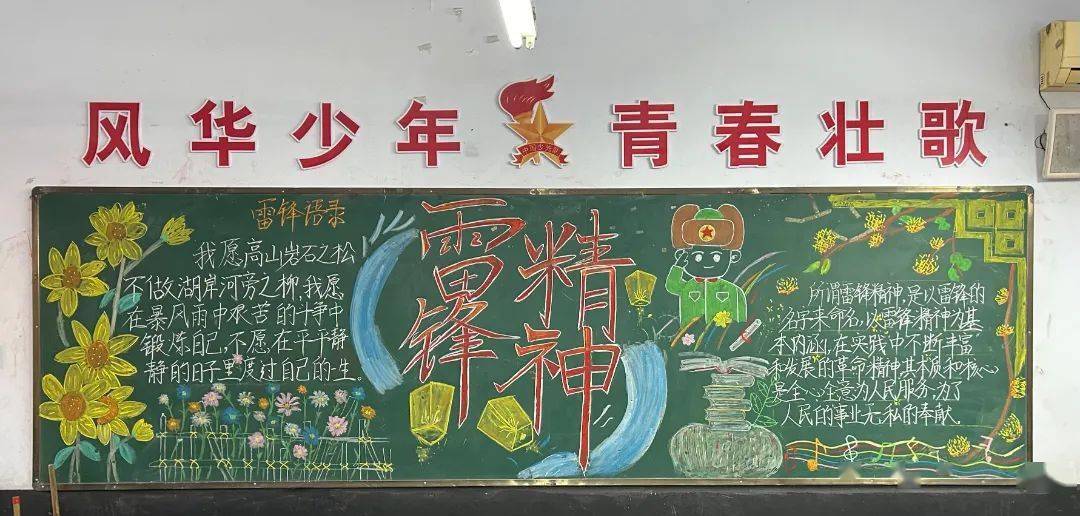 风华少年 青春壮歌
中国少先队
雷锋语录
我愿高山岩石之松
不做湖岸河旁之柳,我愿
在暴风雨中艰苦的斗争中
锻炼自己,不愿在平平静
静的日子里度过自己的一生。
雷锋
精神
所谓雷锋精神,是以雷锋的
名字来命名,以雷锋精神为基
本内涵,在实践中不断丰富
和发展的革命精神,其本质和核心
是全心全意为人民服务,为了
人民的事业无私的奉献